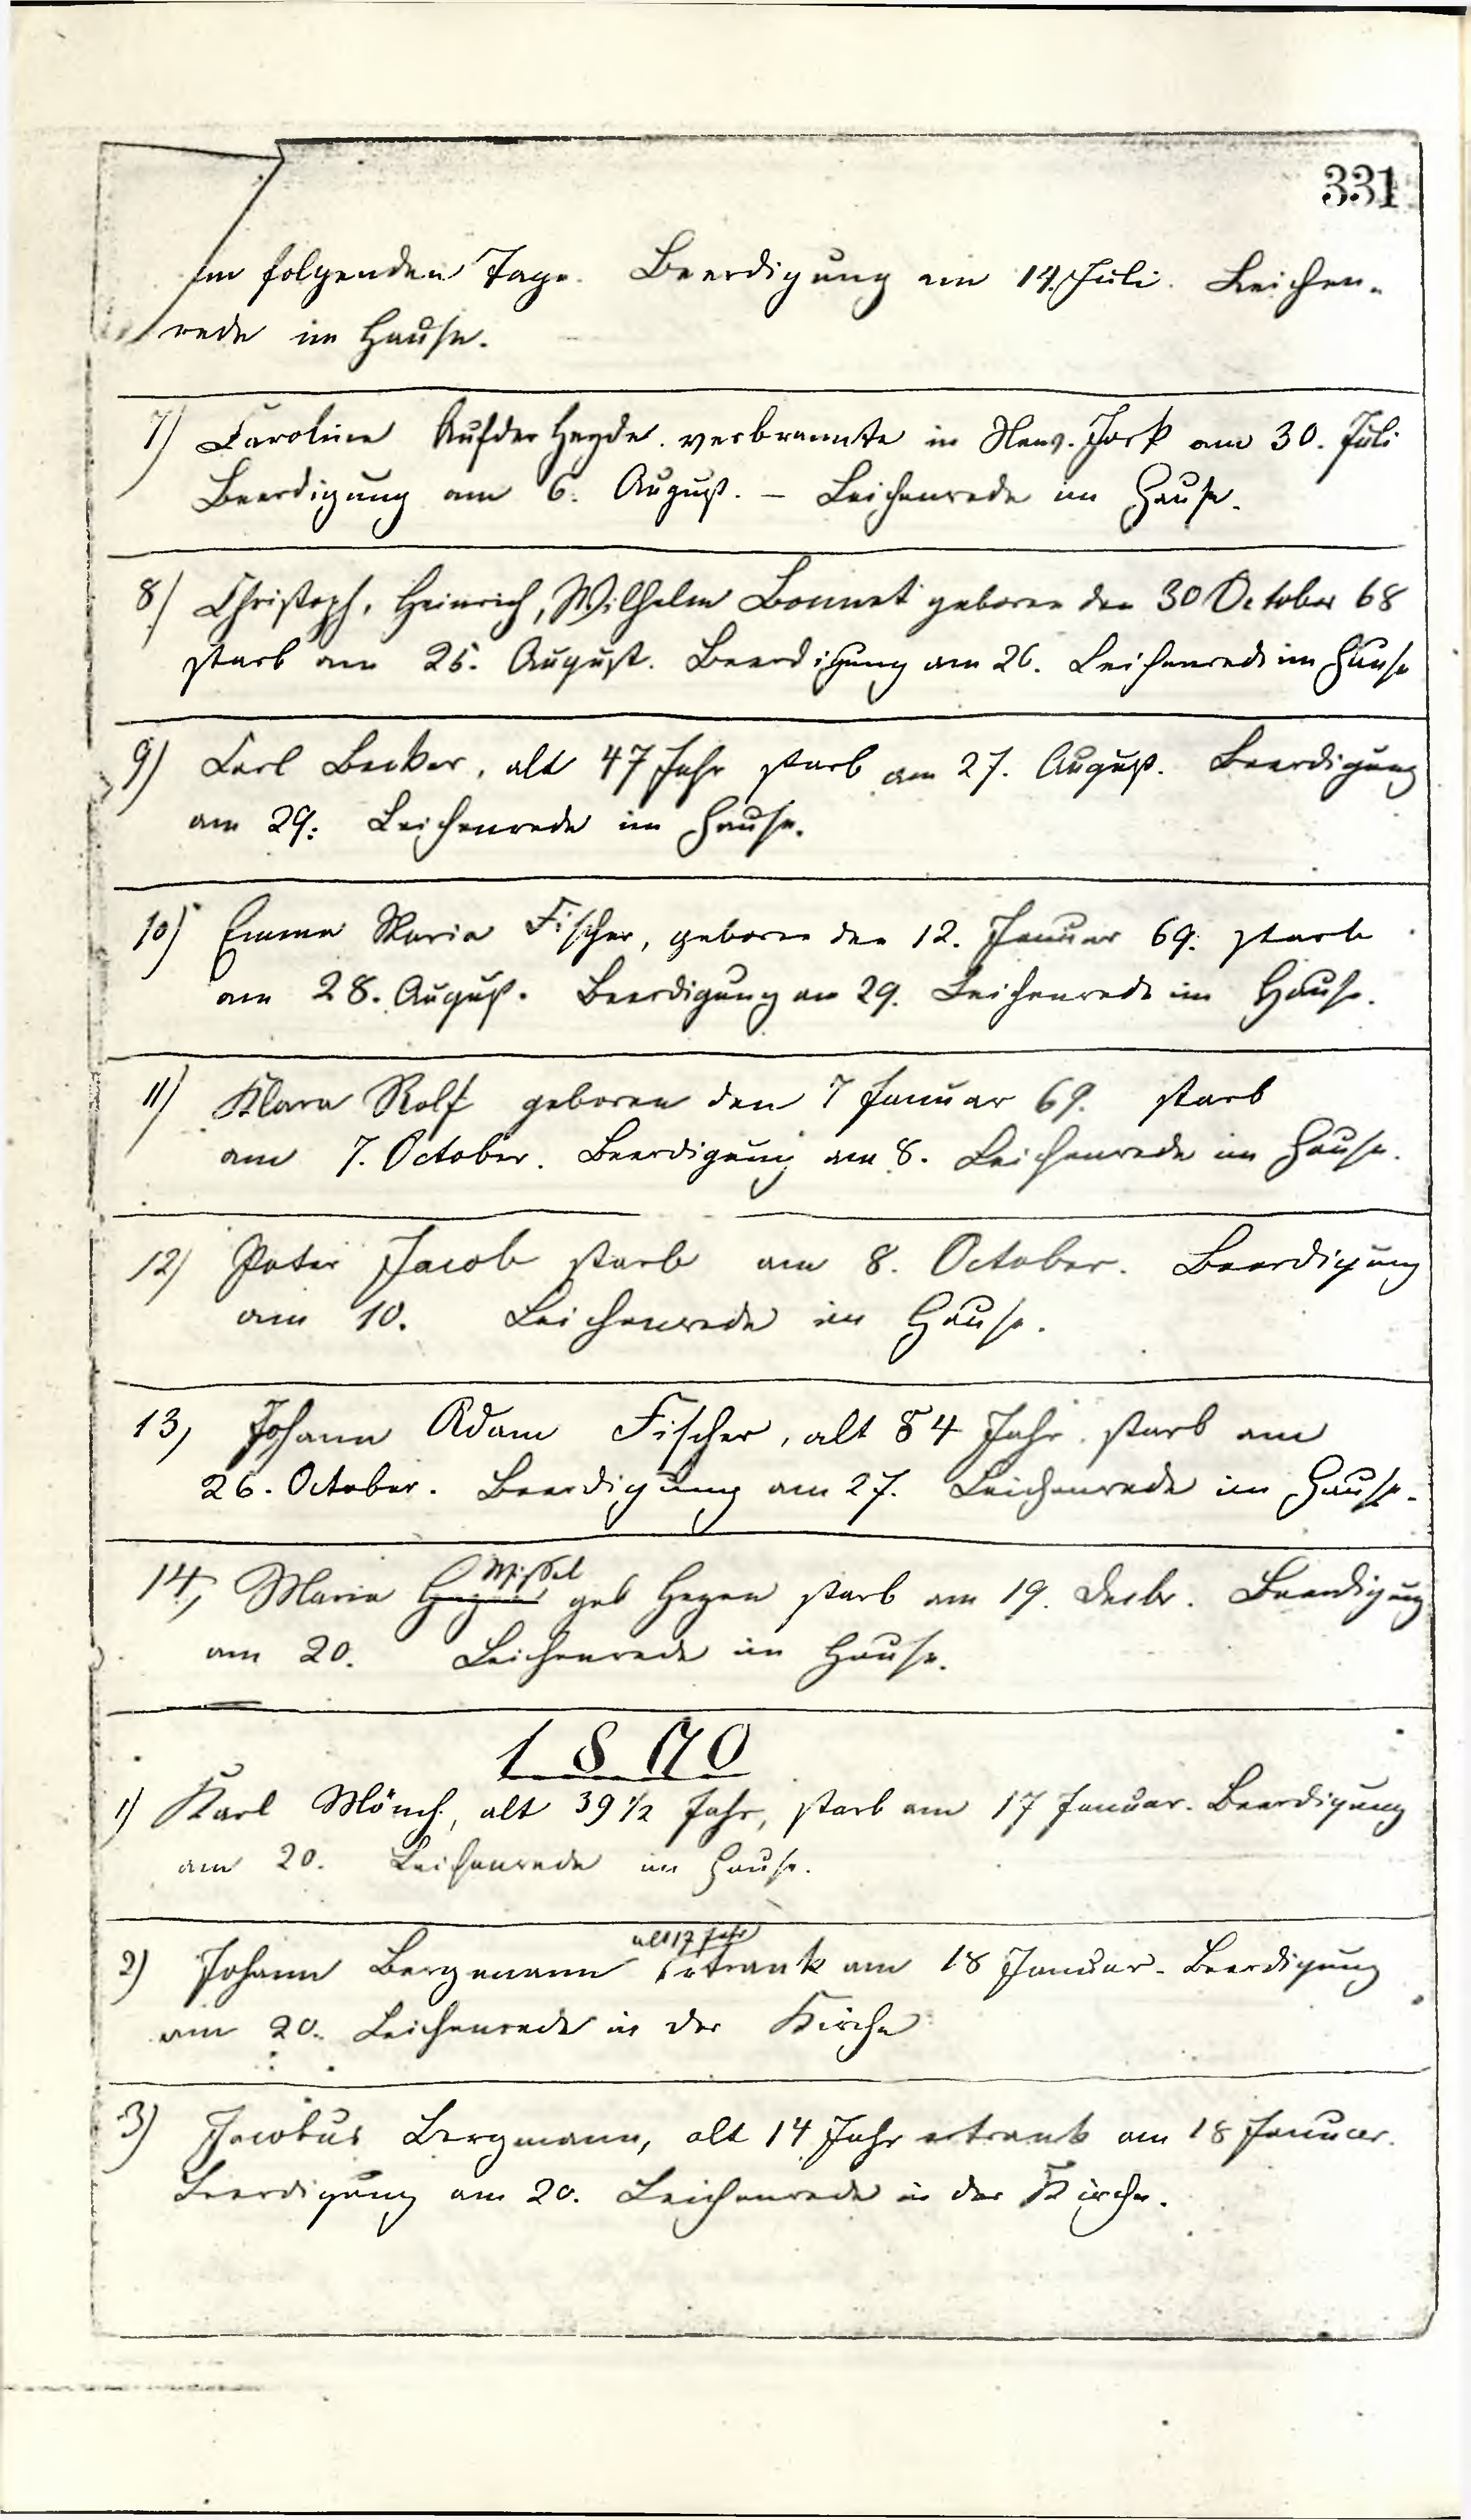 331
am folgenden Tage. Beerdigung am 14. Juli. Leichen-
rede im Hause.
7) Caroline Aufder Heyde. verbrannte in New-York am 30. Juli
Beerdigung am 6. August. – Leichenrede im Hause.
8) Christoph, Heinrich, Wilhelm Bonnet geboren den 30 October 68
starb am 25. August. Beerdigung am 26. Leichenrede im Hause
9) Carl Becker, alt 47 Jahr starb am 27. August. Beerdigung
am 29. Leichenrede im Hause.
10) Emma Maria Fischer, geboren den 12. Januar 69. starb
am 28. August. Beerdigung am 29. Leichenrede im Hause.
11) Klara Rolf geboren den 7 Januar 69. starb
am 7. October. Beerdigung am 8. Leichenrede im Hause.
12) Peter Jacob starb am 8. October. Beerdigung
am 10. Leichenrede im Hause.
13) Johann Adam Fischer, alt 54 Jahr. starb am
26. October. Beerdigung am 27. Leichenrede im Hause.
14) Maria Missel geb Hegen starb am 19. Decbr. Beerdigung
am 20. Leichenrede im Hause.
1870
1) Karl Mönch, alt 39 1/2 Jahr, starb am 17 Januar. Beerdigung
am 20. Leichenrede im Hause.
alt 17 Jahr
2) Johann Bergmann ertrank am 18 Januar. Beerdigung
am 20. Leichenrede in der Kirche
3) Jacobus Bergmann, alt 14 Jahr ertrank am 18 Januar.
Beerdigung am 20. Leichenrede in der Kirche.